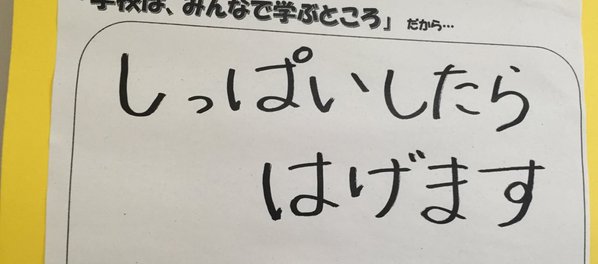 「学校は、みんなで学ぶところ」だから…
しっぱいしたら
はげます